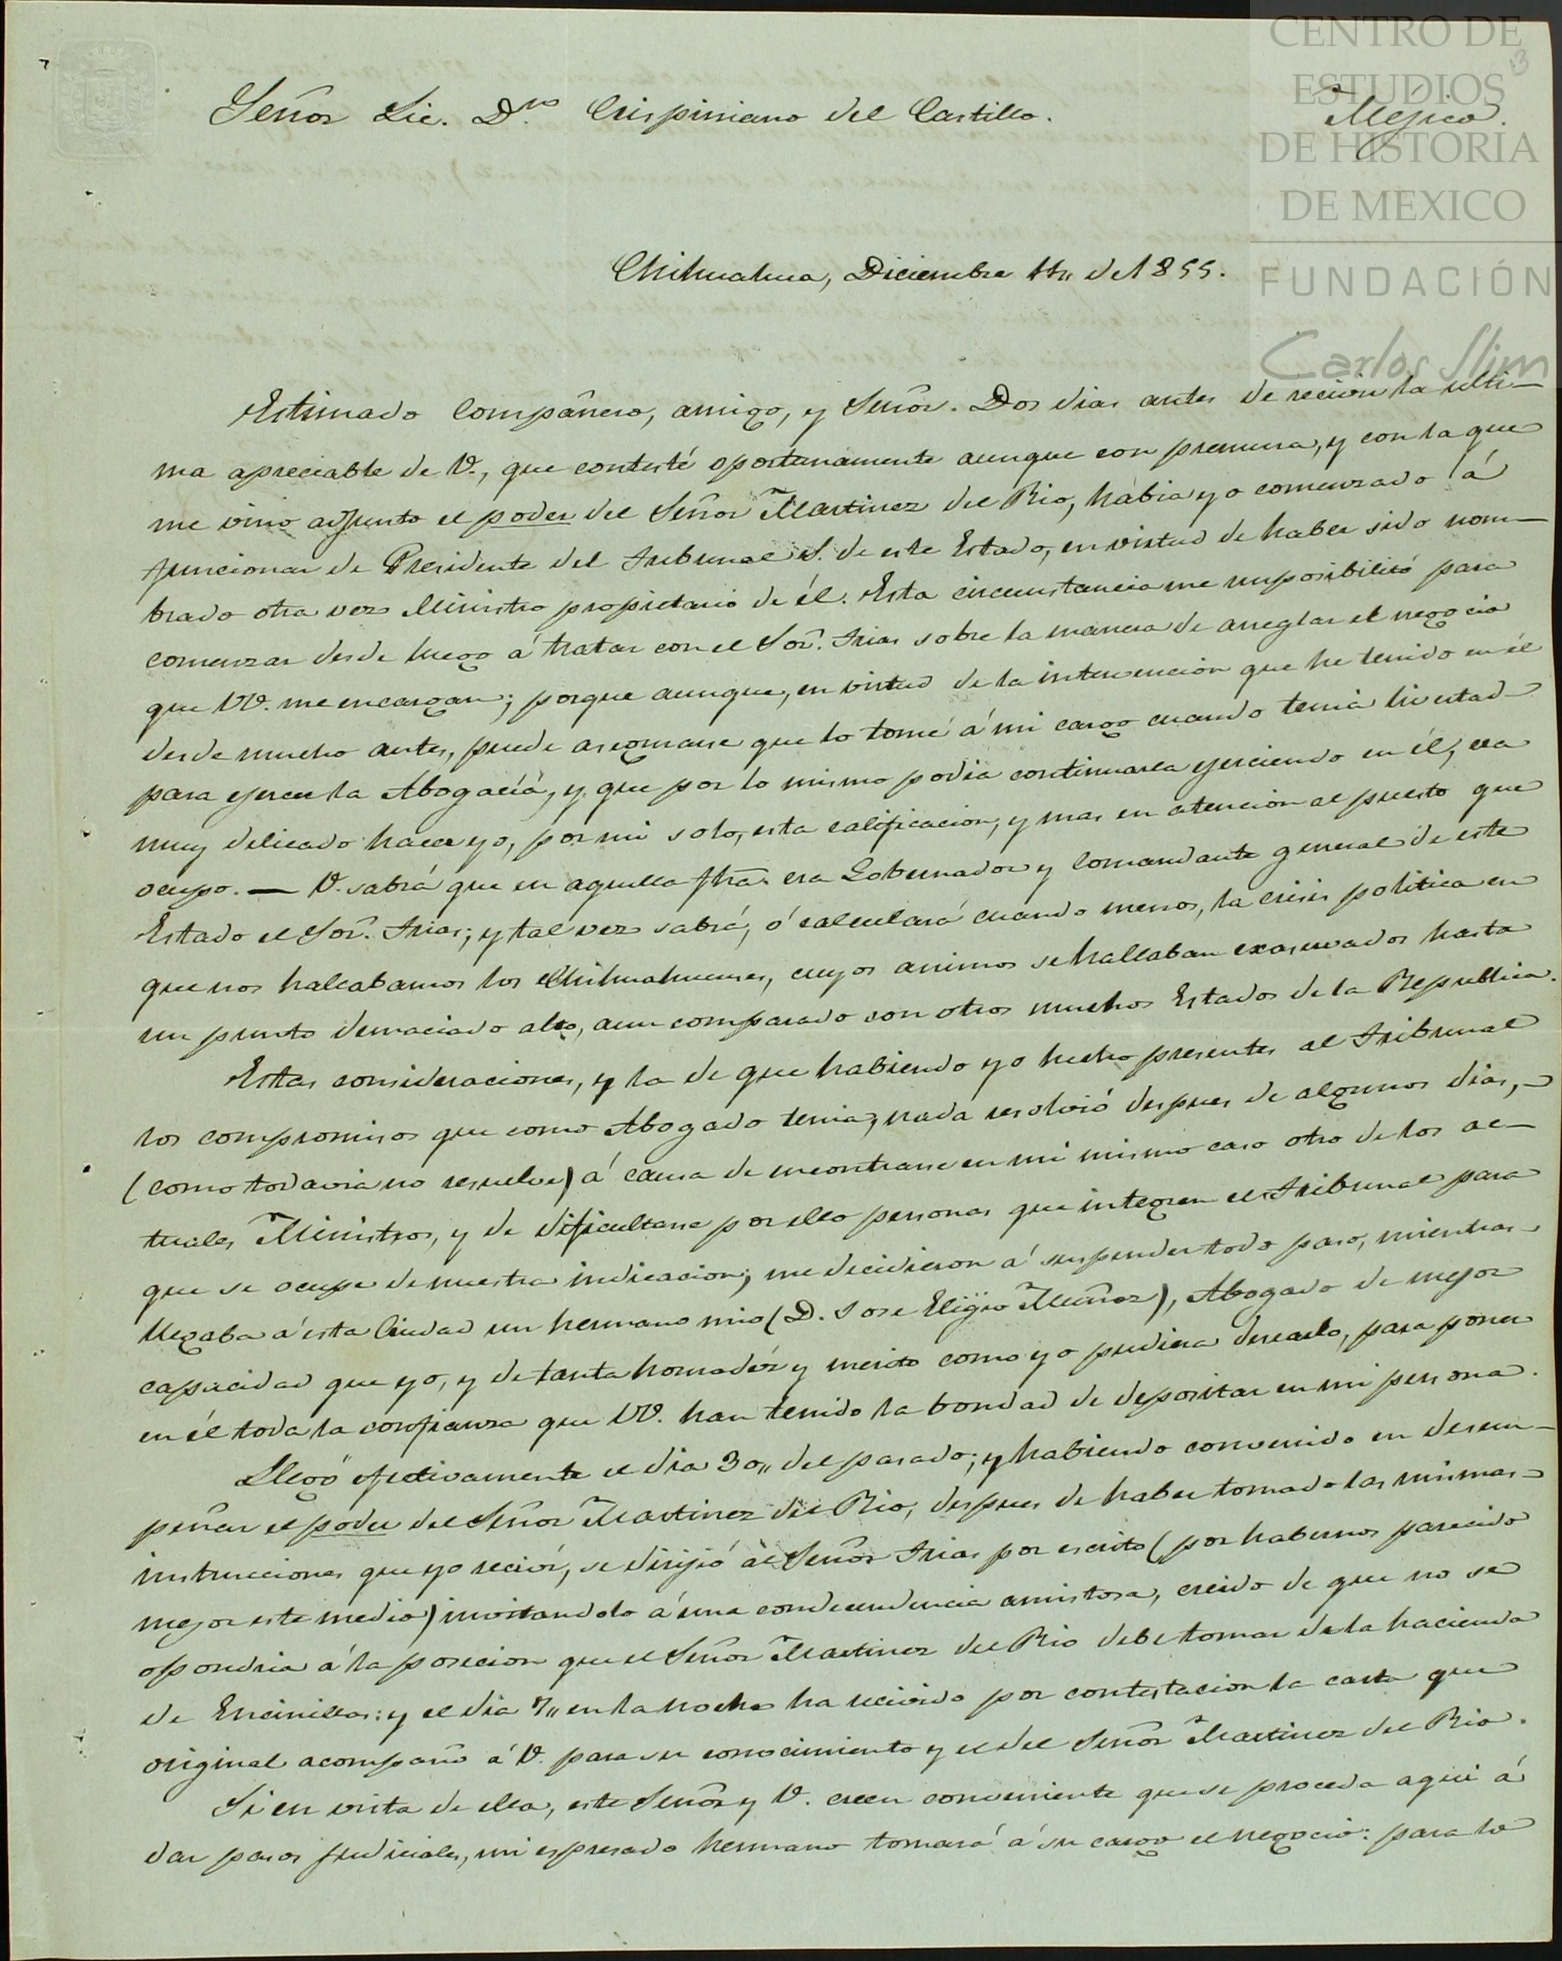 CENTRO DE
ESTUDIOS
DE HISTORIA
DE MEXICO
FUNDACIÓN
Carlos Slim
13
Señor Lic. Dn. Crispiniano del Castillo. Mejico.
Chihuahua, Diciembre 11,, de 1855.
Estimado Compañero, amigo, y Señor. Dos dias antes de recivir la ulti-
ma apreciable de V., que contesté oportunamente aunque con premura, y con la que
me vino adjunto el poder del Señor Martinez del Rio, habia yo comenzado á
funcionar de Presidente del Tribunal S. de este Estado, en virtud de haber sido nom-
brado otra vez Ministro propietario de él. Esta circunstancia me imposibilitó para
comenzar desde luego á tratar con el Sor. Irias sobre la manera de arreglar el negocio
que VV. me encargan; porque aunque, en virtud de la intervencion que he tenido en él
desde mucho antes, puede asegurarse que lo tomé á mi cargo cuando tenia livertad
para ejercer la Abogacía, y que por lo mismo podia continuarla ejerciendo en él, era
muy delicado hacer yo, por mi solo, esta calificacion, y mas en atencion al puesto que
ocupo. — V. sabrá que en aquella fha. era Gobernador y Comandante general de este
Estado el Sor. Irias; y tal vez sabrá, ó calculará cuando menos, la crisis politica en
que nos hallabamos los Chihuahuenses, cuyos animos se hallaban exaservados hasta
un punto demaciado alto, aun comparado con otros muchos Estados de la Republica.
Estas consideraciones, y la de que habiendo yo hecho presentes al Tribunal
los compromisos que como Abogado tenia, nada resolvió despues de algunos dias,
(como todavia no resuelve) á causa de encontrarse en mi mismo caso otro de los ac-
tuales Ministros, y de dificultarse por ello personas que integren el Tribunal para
que se ocupe de nuestra indicacion; me decidieron á suspender todo paso, mientras
llegaba á esta Ciudad un hermano mio (D. Jose Eligio Muñoz), Abogado de mejor
capacidad que yo, y de tanta honradéz y merito como yo pudiera desearlo, para poner
en él toda la confianza que VV. han tenido la bondad de depositar en mi persona.
Llegó efectivamente el dia 30,, del pasado; y habiendo convenido en desem-
peñar el poder del Señor Martinez del Rio, despues de haber tomado las mismas
instrucciones que yo reciví, se dirijió al Señor Irias por escrito (por habernos parecido
mejor este medio) invitandolo á una condecendencia amistosa, creido de que no se
opondria á la posecion que el Señor Martinez del Rio debe tomar de la hacienda
de Encinillas: y el dia 7,, en la noche ha recivido por contestacion la carta que
original acompaño á V. para su conocimiento y el del Señor Martinez del Rio.
Si en vista de ella, este Señor y V. creen conveniente que se proceda aqui á
dar pasos judiciales, mi espresado hermano tomará á su cargo el negocio: para lo